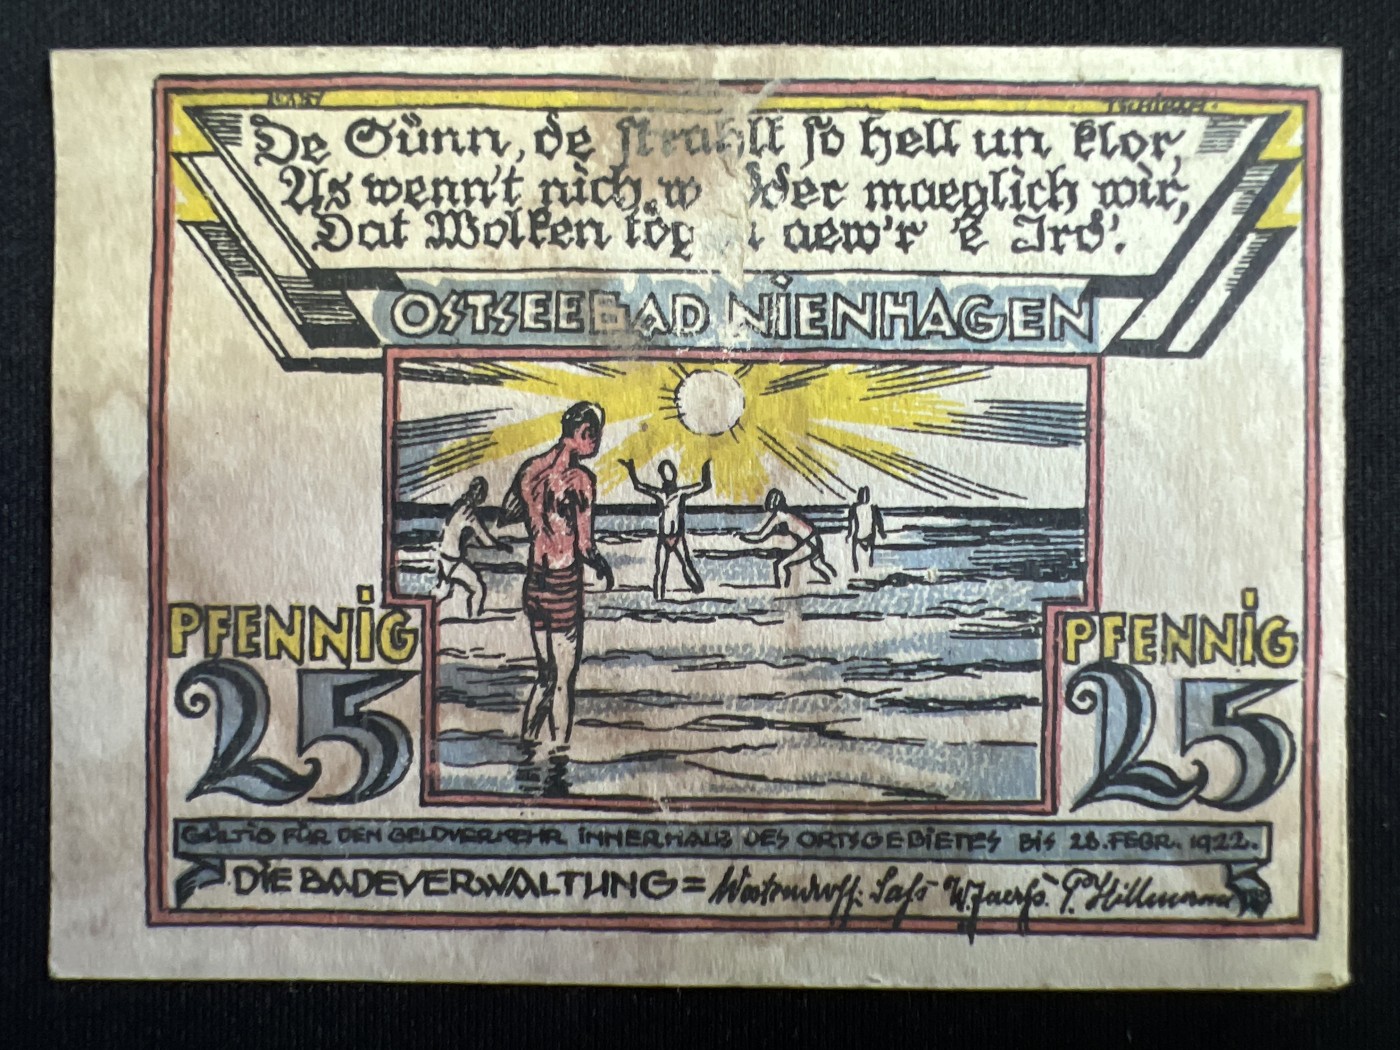 De Sünn, de strahlt so hell un klor,
As wenn't nich wedder maeglich wir,
Dat Wolken tög aew'r 'e Ird'.
OSTSEEBAD NIENHAGEN
PFENNIG
25
PFENNIG
25
GÜLTIG FÜR DEN GELDVERKEHR INNERHALB DES ORTSGEBIETES BIS 28. FEBR. 1922.
DIE BADEVERWALTUNG =